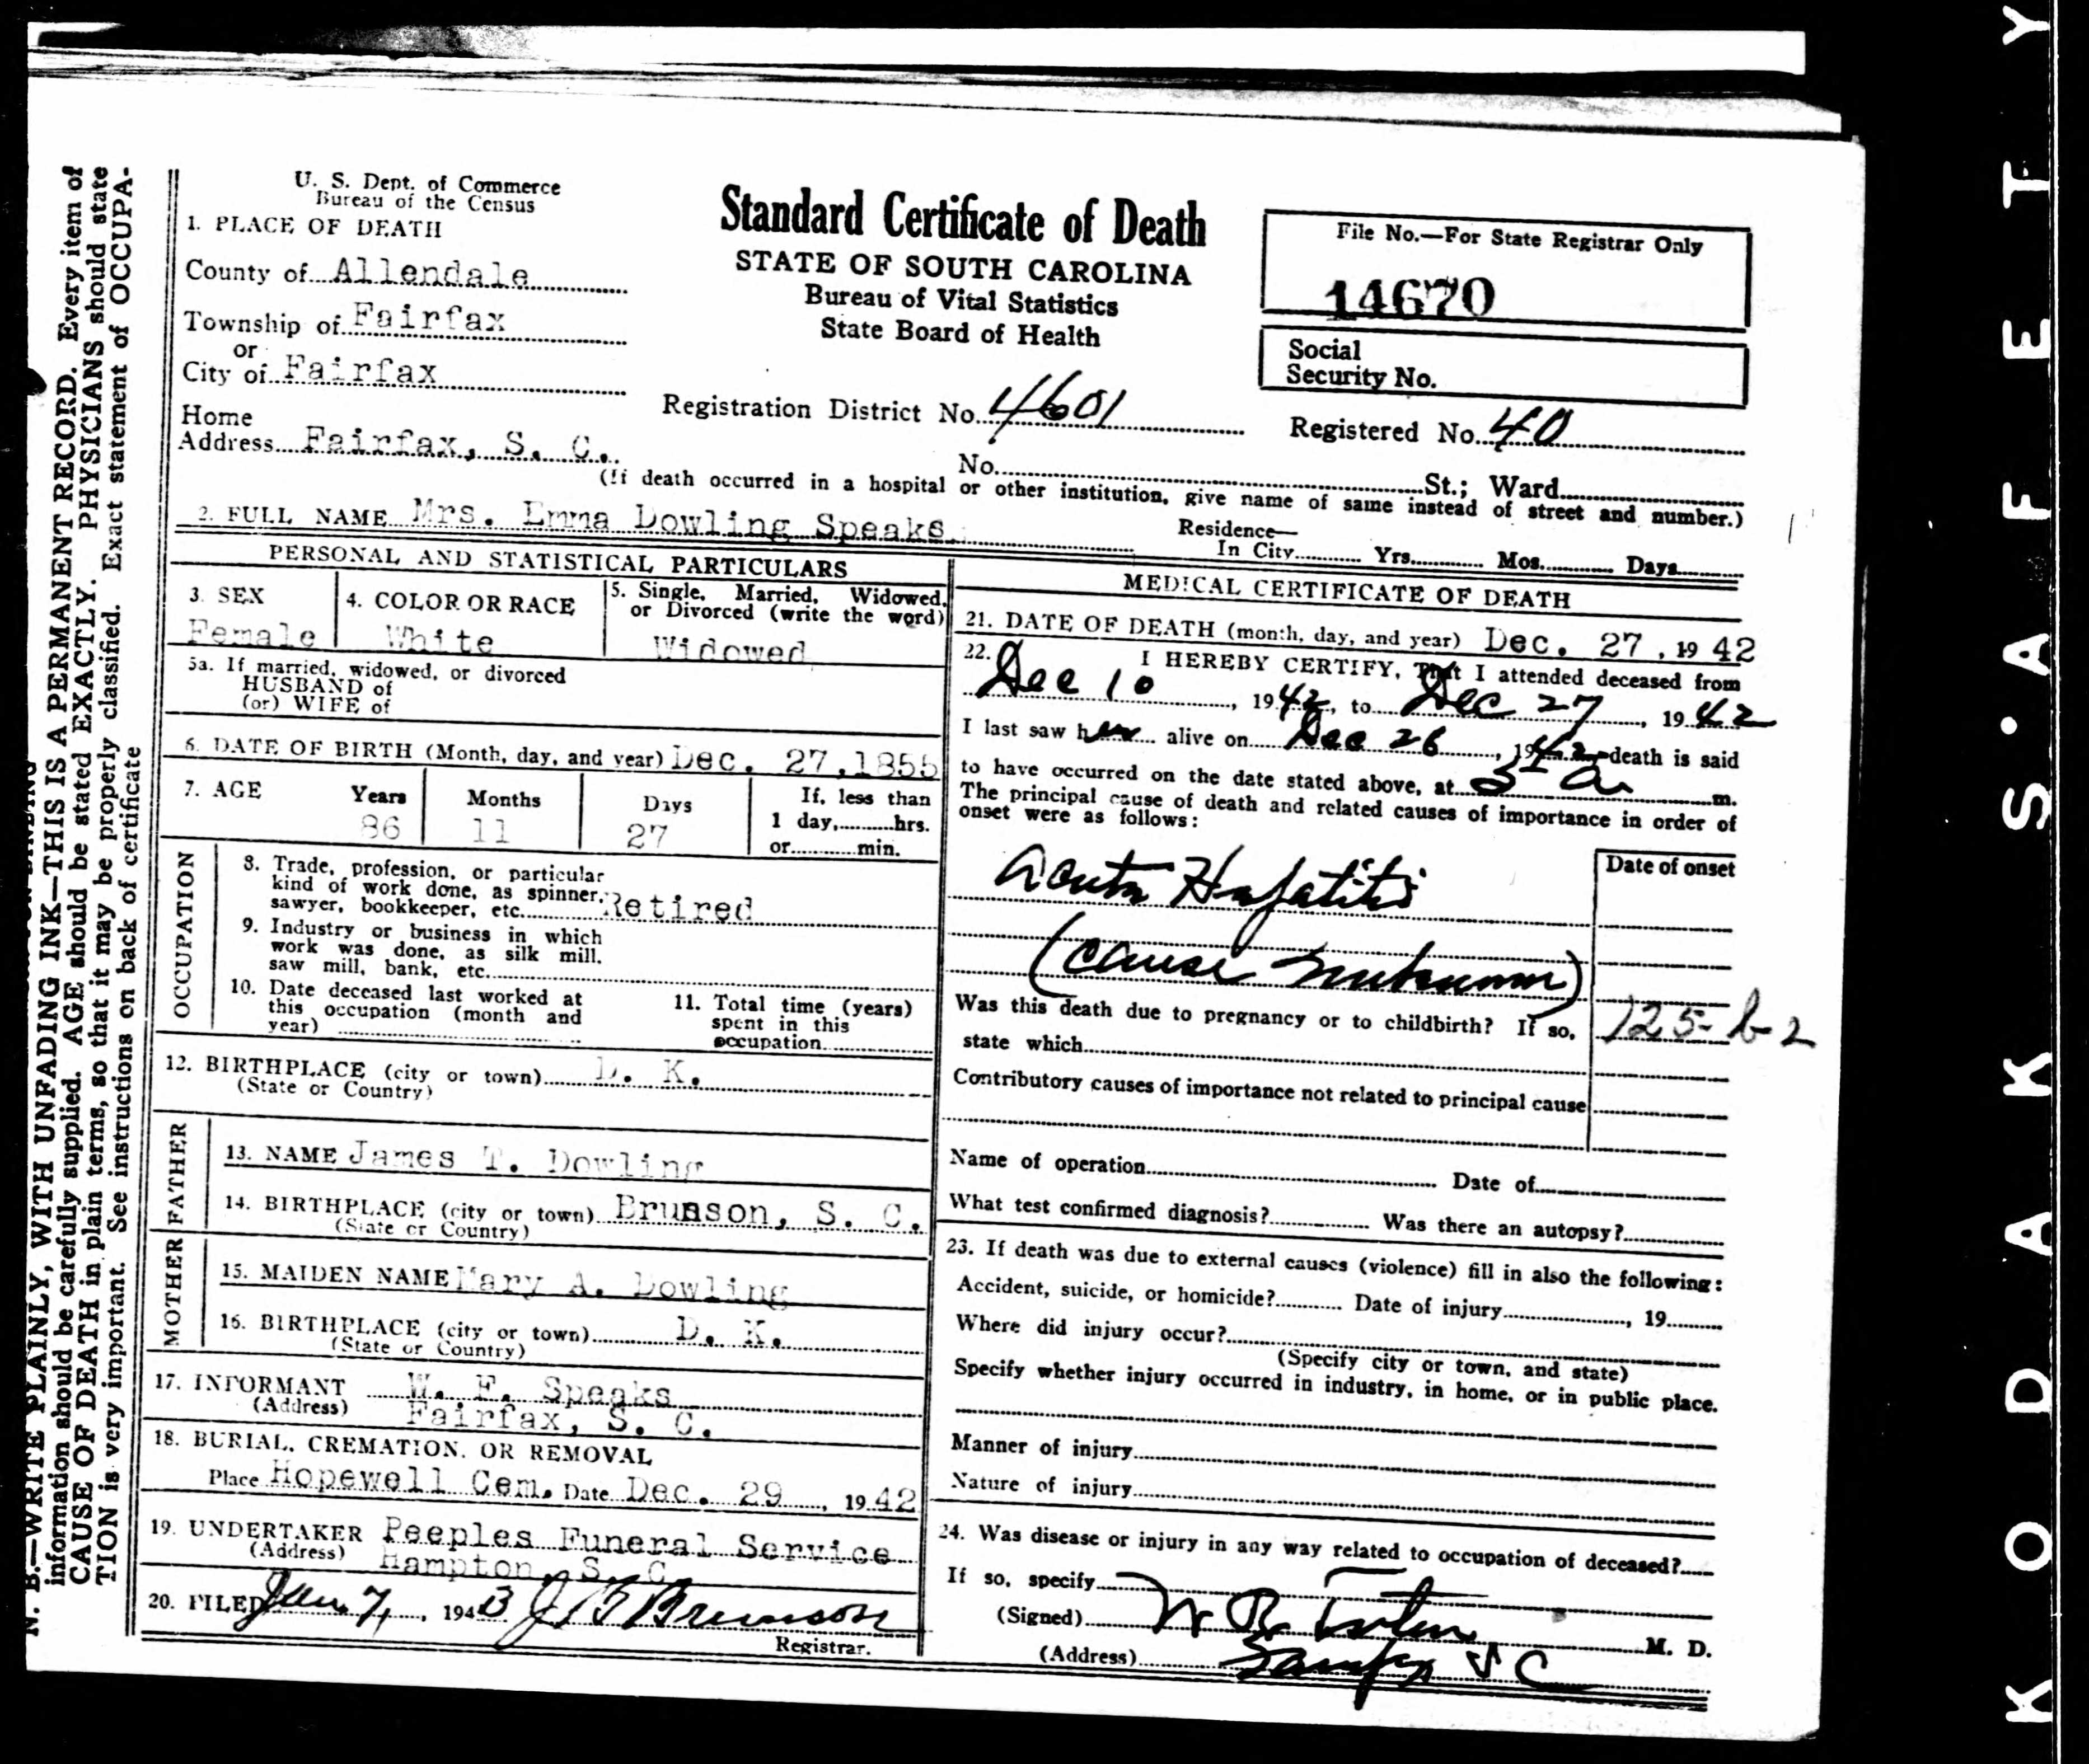 U. S. Dept. of Commerce
Bureau of the Census
Standard Certificate of Death
STATE OF SOUTH CAROLINA
Bureau of Vital Statistics
State Board of Health
File No.—For State Registrar Only
14670
Social
Security No.
1. PLACE OF DEATH
County of Allendale
Township of Fairfax
or
City of Fairfax
Home
Address Fairfax, S. C.
Registration District No. 4601
Registered No. 40
No. St.; Ward
(If death occurred in a hospital or other institution, give name of same instead of street and number.)
2. FULL NAME Mrs. Emma Dowling Speaks
Residence—
In City Yrs. Mos. Days
PERSONAL AND STATISTICAL PARTICULARS
3. SEX
Female
4. COLOR OR RACE
White
5. Single, Married, Widowed,
or Divorced (write the word)
Widowed
5a. If married, widowed, or divorced
HUSBAND of
(or) WIFE of
6. DATE OF BIRTH (Month, day, and year) Dec. 27, 1855
7. AGE
Years
86
Months
11
Days
27
If, less than
1 day, hrs.
or min.
OCCUPATION
8. Trade, profession, or particular
kind of work done, as spinner,
sawyer, bookkeeper, etc. Retired
9. Industry or business in which
work was done, as silk mill.
saw mill, bank, etc.
10. Date deceased last worked at
this occupation (month and
year)
11. Total time (years)
spent in this
occupation
12. BIRTHPLACE (city or town) D. K.
(State or Country)
FATHER
13. NAME James T. Dowling
14. BIRTHPLACE (city or town) Brunson, S. C.
(State or Country)
MOTHER
15. MAIDEN NAME Mary A. Dowling
16. BIRTHPLACE (city or town) D. K.
(State or Country)
17. INFORMANT W. F. Speaks
(Address) Fairfax, S. C.
18. BURIAL, CREMATION, OR REMOVAL
Place Hopewell Cem. Date Dec. 29, 1942
19. UNDERTAKER Peeples Funeral Service
(Address) Hampton, S. C.
20. FILED Jan 7, 1943 J B Brunson
Registrar.
MEDICAL CERTIFICATE OF DEATH
21. DATE OF DEATH (month, day, and year) Dec. 27, 19 42
22. I HEREBY CERTIFY, That I attended deceased from
Dec 10, 1942, to Dec 27, 1942
I last saw her alive on Dec 26, 1942 death is said
to have occurred on the date stated above, at 5 a m.
The principal cause of death and related causes of importance in order of
onset were as follows:
Date of onset
Acute Hepatitis
(cause unknown)
125-b-2
Was this death due to pregnancy or to childbirth? If so,
state which
Contributory causes of importance not related to principal cause
Name of operation Date of
What test confirmed diagnosis? Was there an autopsy?
23. If death was due to external causes (violence) fill in also the following:
Accident, suicide, or homicide? Date of injury , 19
Where did injury occur?
(Specify city or town, and state)
Specify whether injury occurred in industry, in home, or in public place.
Manner of injury
Nature of injury
24. Was disease or injury in any way related to occupation of deceased?
If so, specify
(Signed) W R M. D.
(Address) S C
N. B.—WRITE PLAINLY, WITH UNFADING INK—THIS IS A PERMANENT RECORD. Every item of
information should be carefully supplied. AGE should be stated EXACTLY. PHYSICIANS should state
CAUSE OF DEATH in plain terms, so that it may be properly classified. Exact statement of OCCUPA-
TION is very important. See instructions on back of certificate
KODAK S'AFETY